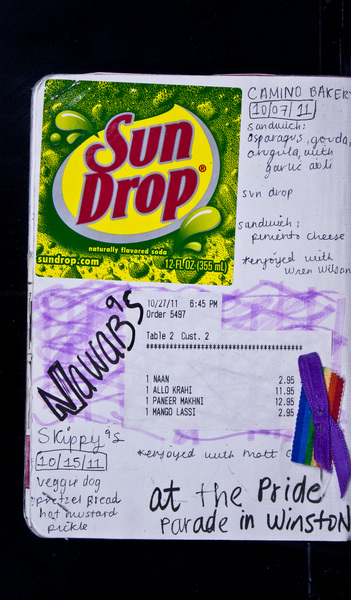 Sun
Drop®
naturally flavored soda
sundrop.com
12 FL OZ (355 mL)
CAMINO BAKER
10/07/11
sandwich:
asparagus, gouda,
arugula, with
garlic aoli
sun drop
sandwich:
pimento cheese
*enjoyed with
Wren Wilson
NAWAB'S
10/27/11 6:45 PM
Order 5497
Table 2 Cust. 2
1 NAAN 2.95
1 ALLO KRAHI 11.95
1 PANEER MAKHNI 12.95
1 MANGO LASSI 2.95
*enjoyed with Matt
Skippy's
10/15/11
veggie dog
pretzel bread
hot mustard
pickle
at the Pride
Parade in WINSTON